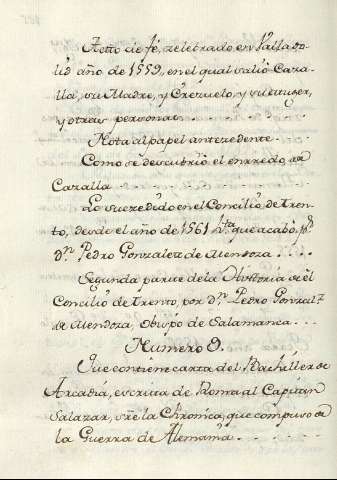 Actto de fé, zelebrado en Vallado-
lid año de 1559, en el qual salió Caza-
lla, su Madre, y Crezuelo, y su muger,
y otras personas. . . . .
Nota al papel antezedente.
Como se descubrió el enrredo de
Cazalla . . . . .
Lo suzedido en el Concilio de Tren-
to, desde el año de 1561 hta. que acabó, pr.
dn. Pedro Gonzalez de Mendoza . . . .
Segunda parte de la Historia de el
Concilio de Trento, por dn. Pedro Gonzalz
de Mendoza, Obispo de Salamanca . . . .
Numero 9.
Que contiene carta del Bachiller de
Arcadia, escrita de Roma al Capitán
Salazar, sre la Chronica, que compuso de
la Guerra de Alemania . . . .